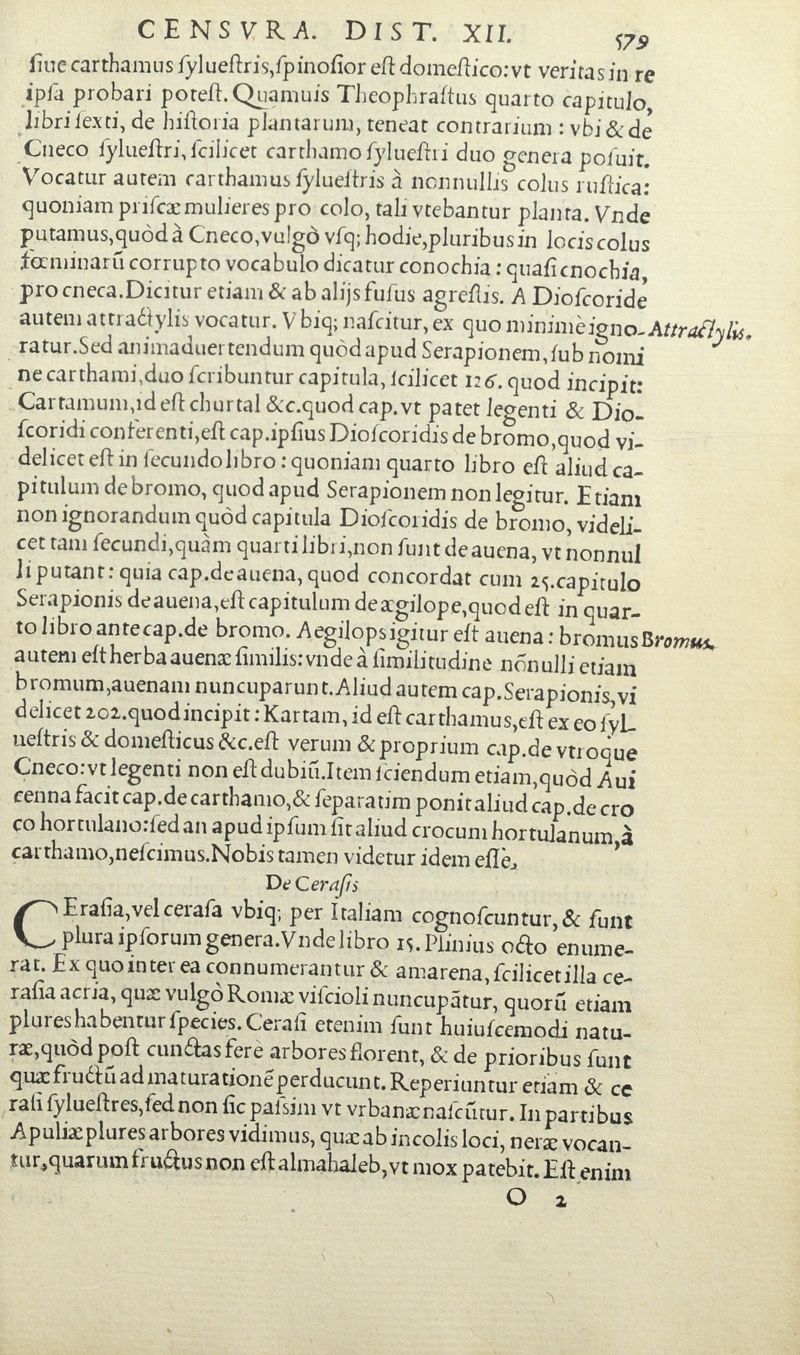 CENSVRA. DIST. XII. 579
ſiue carthamus ſylueſtris,ſpinoſior eſt domeſtico:vt veritas in re
ipſa probari poteſt. Quamuis Theophraſtus quarto capitulo,
libri ſexti, de hiſtoria plantarum, teneat contrarium : vbi & de
Cneco ſylueſtri, ſcilicet carthamo ſylueſtri duo genera poſuit.
Vocatur autem carthamus ſylueſtris à nonnullis colus ruſtica:
quoniam priſcæ mulieres pro colo, tali vtebantur planta. Vnde
putamus,quòd à Cneco,vulgò vſq; hodie,pluribus in locis colus
fœminarū corrupto vocabulo dicatur conochia : quaſi cnochia,
pro cneca.Dicitur etiam & ab alijs fuſus agreſtis. A Dioſcoride
autem attractylis vocatur. Vbiq; naſcitur, ex quo minimè igno- Attractylis.
ratur.Sed animaduertendum quòd apud Serapionem,ſub nomi
ne carthami,duo ſcribuntur capitula, ſcilicet 126. quod incipit:
Cartamum,id eſt churtal &c.quod cap.vt patet legenti & Dio-
ſcoridi conferenti,eſt cap.ipſius Dioſcoridis de bromo,quod vi-
delicet eſt in ſecundo libro : quoniam quarto libro eſt aliud ca-
pitulum de bromo, quod apud Serapionem non legitur. Etiam
non ignorandum quòd capitula Dioſcoridis de bromo, videli-
cet tam ſecundi,quàm quarti libri,non ſunt de auena, vt nonnul
li putant: quia cap.de auena, quod concordat cum 25.capitulo
Serapionis de auena,eſt capitulum de ægilope,quod eſt in quar-
to libro ante cap.de bromo. Aegilops igitur eſt auena : bromus Bromus.
autem eſt herba auenæ ſimilis:vnde à ſimilitudine nōnulli etiam
bromum,auenam nuncuparunt.Aliud autem cap.Serapionis,vi
delicet 202.quod incipit : Kartam, id eſt carthamus,eſt ex eo ſyl-
ueſtris & domeſticus &c.eſt verum & proprium cap.de vtroque
Cneco:vt legenti non eſt dubiū.Item ſciendum etiam,quòd Aui
cenna facit cap.de carthamo,& ſeparatim ponit aliud cap.de cro
co hortulano:ſed an apud ipſum ſit aliud crocum hortulanum,à
carthamo,neſcimus.Nobis tamen videtur idem eſſe.
De Ceraſis
CEraſia,vel ceraſa vbiq; per Italiam cognoſcuntur, & ſunt
plura ipſorum genera.Vnde libro 15. Plinius octo enume-
rat. Ex quo inter ea connumerantur & amarena, ſcilicet illa ce-
raſia acria, quæ vulgò Romæ viſcioli nuncupātur, quorū etiam
plures habentur ſpecies. Ceraſi etenim ſunt huiuſcemodi natu-
ræ,quòd poſt cunctas ferè arbores florent, & de prioribus ſunt
quæ fructū ad maturationē perducunt. Reperiuntur etiam & ce
raſi ſylueſtres,ſed non ſic paſsim vt vrbanæ naſcūtur. In partibus
Apuliæ plures arbores vidimus, quæ ab incolis loci, neræ vocan-
tur,quarum fructus non eſt almahaleb,vt mox patebit. Eſt enim
O 2